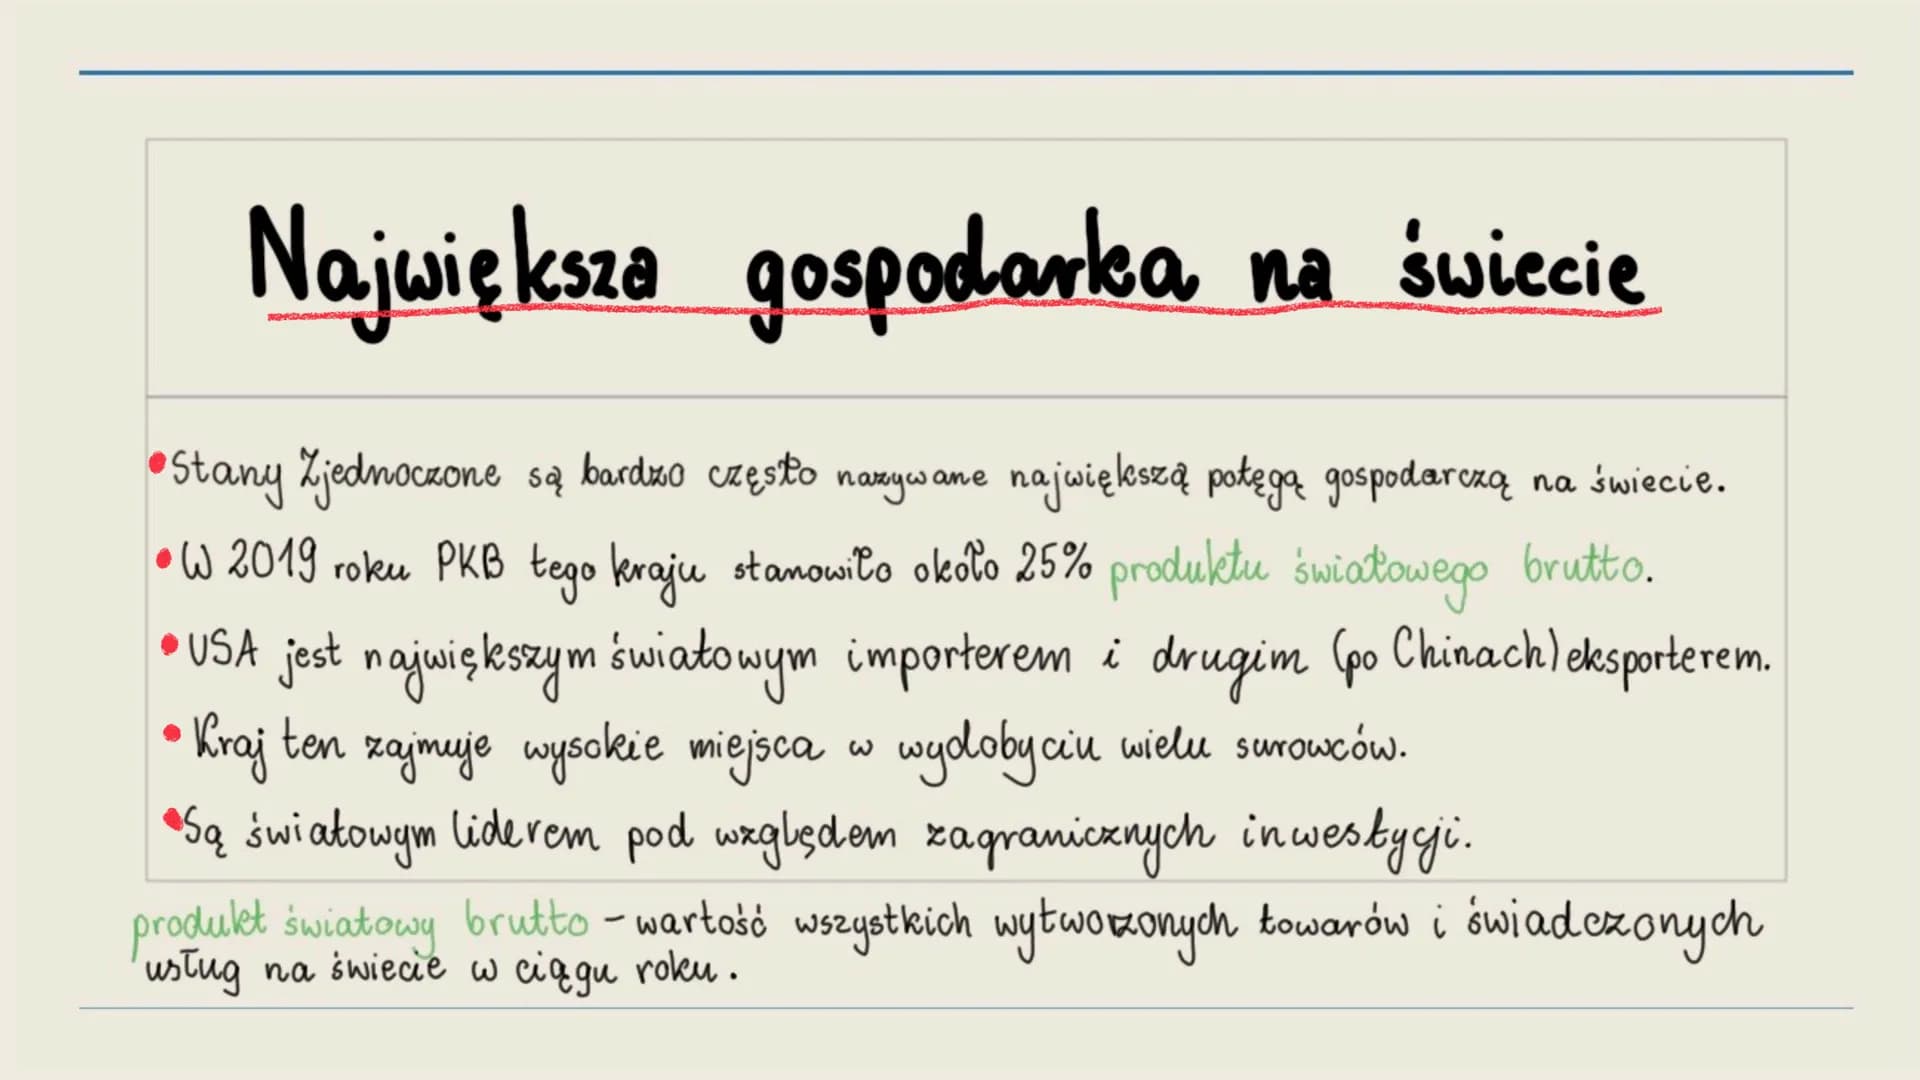 Największa gospodarka na świecie
• Stany Zjednoczone są bardzo często nazywane największą potęgą gospodarczą na świecie.
• W 2019 roku PKB tego kraju stanowiło około 25% produktu światowego brutto.
• USA jest największym światowym importerem i drugim (po Chinach) eksporterem.
• Kraj ten zajmuje wysokie miejsca w wydobyciu wielu surowców.
• Są światowym liderem pod względem zagranicznych inwestycji.
produkt światowy brutto – wartość wszystkich wytworzonych towarów i świadczonych
usług na świecie w ciągu roku.